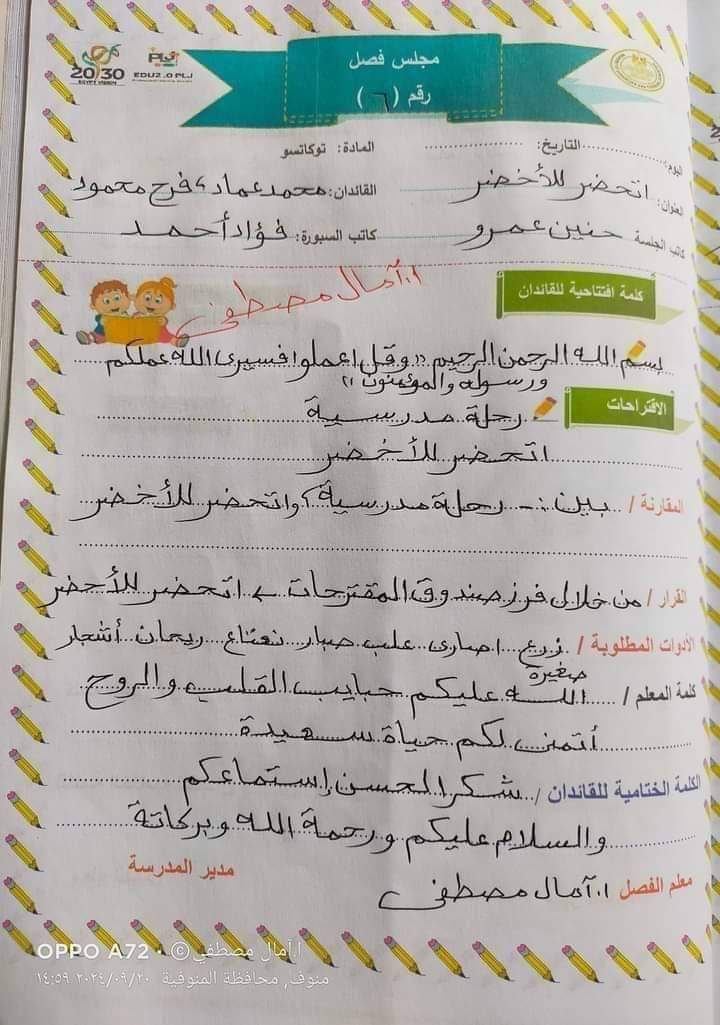 2030
EGYPT VISION
EDU2.0 PLJ
مجلس فصل
رقم (٦)
اليوم: التاريخ: المادة: توكاتسو
العنوان: اتحضر للأخضر القائدان: محمد عماد، فرح محمود
كاتب الجلسة حنين عمرو كاتب السبورة: فؤاد أحمد
كلمة افتتاحية للقائدان أ. آمال مصطفى
بسم الله الرحمن الرحيم "وقل اعملوا فسيرى الله عملكم
ورسوله والمؤمنون"
الاقتراحات رحلة مدرسية
اتحضر للأخضر
المقارنة / بين :- رحلة مدرسية، واتحضر للأخضر
القرار / من خلال فرز صندوق المقترحات ← اتحضر للأحضر
الأدوات المطلوبة / زرع اصارى علب صبار نعناع ريحان أشجار
صغيرة
كلمة المعلم / الله عليكم حبايب القلب والروح
أتمنى لكم حياة سعيدة
الكلمة الختامية للقائدان / شكرا لحسن إستماعكم
والسلام عليكم ورحمة الله وبركاتة
مدير المدرسة
معلم الفصل أ. آمال مصطفى
OPPO A72 · © ا.آمال مصطفي
منوف, محافظة المنوفية ٢٠٢٤/٠٩/٢٠ ١٤:٥٩